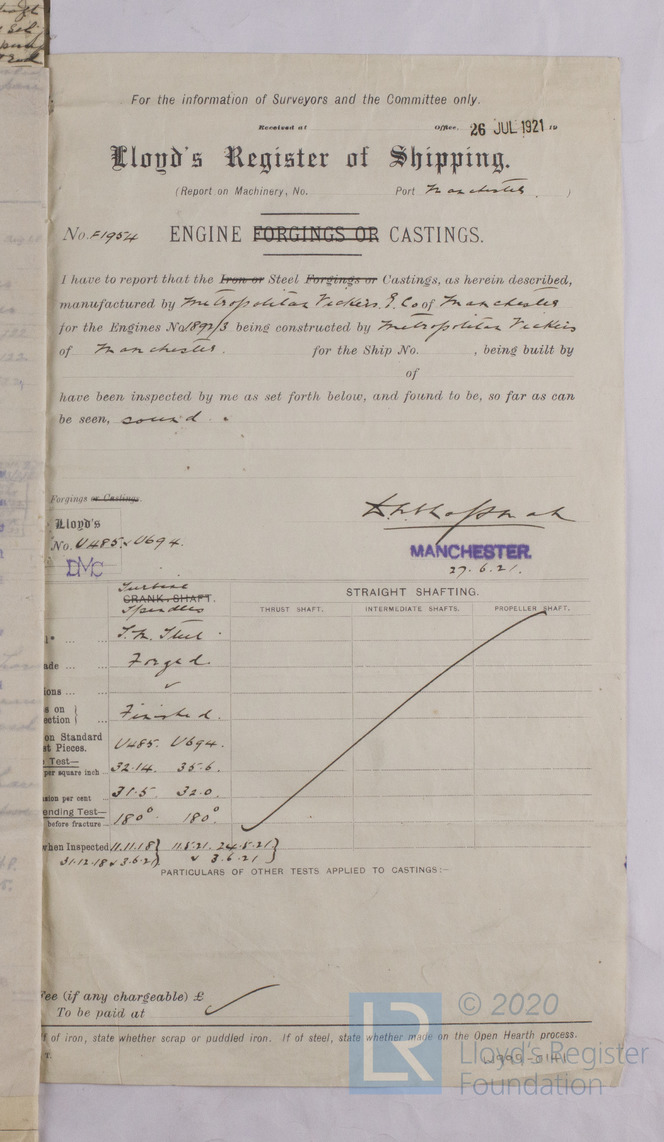 For the information of Surveyors and the Committee only.
Received at Office, 26 JUL 1921 19
Lloyd's Register of Shipping.
(Report on Machinery, No. Port Manchester )
No. F1954 ENGINE FORGINGS OR CASTINGS.
I have to report that the Iron or Steel Forgings or Castings, as herein described,
manufactured by Metropolitan Vickers E. Co of Manchester
for the Engines No 1892/3 being constructed by Metropolitan Vickers
of Manchester. for the Ship No. , being built by
of
have been inspected by me as set forth below, and found to be, so far as can
be seen, sound.
Forgings or Castings.
Lloyd's
No. U485 & U694.
DMC
MANCHESTER.
27.6.21.
Turbine
CRANK SHAFT.
Spindles
STRAIGHT SHAFTING.
THRUST SHAFT. INTERMEDIATE SHAFTS. PROPELLER SHAFT.
S.M. Steel
Forged.
Finished.
on Standard
Pieces. U485. U694.
Test—
per square inch 32.14. 35.6.
per cent 31.5. 32.0.
ending Test—
before fracture 180° 180°
when Inspected 11.11.18 } 11.5.21. 24.5.21 }
31.12.18 & 3.6.21 } & 3.6.21 }
PARTICULARS OF OTHER TESTS APPLIED TO CASTINGS:—
Fee (if any chargeable) £
To be paid at
If of iron, state whether scrap or puddled iron. If of steel, state whether made on the Open Hearth process.
W999-0141
LR
© 2020
Lloyd's Register
Foundation